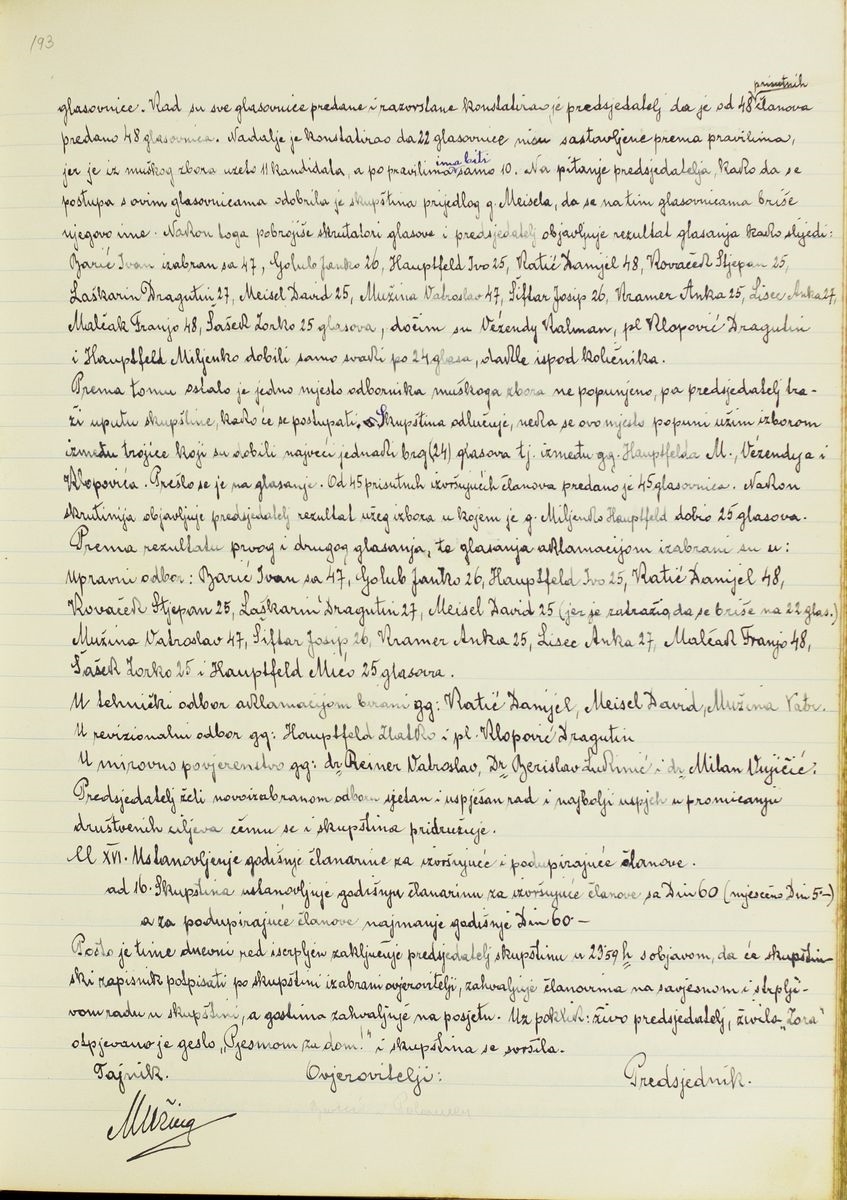 193
prisutnih
glasovnice. Kad su sve glasovnice predane i razvrstane konstatirao je predsjedatelj da je od 48 članova
predano 48 glasovnica. Nadalje je konstatirao da 22 glasovnice nisu sastavljene prema pravilima,
jer je iz muškog zbora uzeto 11 kandidata, a po pravilima ima biti samo 10. Na pitanje predsjedatelja, kako da se
postupa s ovim glasovnicama odobrila je skupština prijedlog g. Meisela, da se na tim glasovnicama briše
njegovo ime. Nakon toga pobrojiše skrutatori glasove i predsjedatelj objavljuje rezultat glasanja kako slijedi:
Barić Ivan izabran sa 47, Golub Janko 26, Hauptfeld Ivo 25, Katić Danijel 48, Kovaček Stjepan 25,
Laškarin Dragutin 27, Meisel David 25, Mužina Vatroslav 47, Šiftar Josip 26, Kramer Anka 25, Lisec Anka 27,
Malčak Franjo 48, Šašek Zorko 25 glasova, dočim su Vézendy Kalman, pl Klopović Dragutin
i Hauptfeld Miljenko dobili samo svaki po 24 glasa, dakle ispod količnika.
Prema tomu ostalo je jedno mjesto odbornika muškoga zbora ne popunjeno, pa predsjedatelj tra-
ži uputu skupštine, kako će se postupati. Skupština odlučuje, neka se ovo mjesto popuni užim izborom
između trojice koji su dobili najveći jednaki broj (24) glasova tj. između gg. Hauptfelda M., Vézendya i
Klopovića. Prešlo se je na glasanje. Od 45 prisutnih izvršujućih članova predano je 45 glasovnica. Nakon
skrutinija objavljuje predsjedatelj rezultat užeg izbora u kojem je g. Miljenko Hauptfeld dobio 25 glasova.
Prema rezultatu prvog i drugog glasanja, te glasanja aklamacijom izabrani su u:
Upravni odbor: Barić Ivan sa 47, Golub Janko 26, Hauptfeld Ivo 25, Katić Danijel 48,
Kovaček Stjepan 25, Laškarin Dragutin 27, Meisel David 25 (jer je zatražio, da se briše na 22 glas.)
Mužina Vatroslav 47, Šiftar Josip 26, Kramer Anka 25, Lisec Anka 27, Malčak Franjo 48,
Šašek Zorko 25 i Hauptfeld Mićo 25 glasova.
U tehnički odbor aklamacijom birani gg: Katić Danijel, Meisel David, Mužina Vatr.
U revizionalni odbor gg: Hauptfeld Zlatko i pl. Klopović Dragutin
U mirovno povjerenstvo gg: dr. Reiner Vatroslav, Dr Berislav Lukinić i dr Milan Vujičić.
Predsjedatelj želi novoizabranom odboru sjetan i uspješan rad i najbolji uspjeh u promicanju
društvenih ciljeva čemu se i skupština pridružuje.
Ad XVI. Ustanovljenje godišnje članarine za izvršujuće i podupirajuće članove.
ad 16. Skupština ustanovljuje godišnju članarinu za izvršujuće članove sa Din 60 (mjesečno Din 5-)
a za podupirajuće članove najmanje godišnje Din 60-
Pošto je time dnevni red iscrpljen zaključuje predsjedatelj skupštinu u 23 59 h s objavom, da će skupštin-
ski zapisnik potpisati po skupštini izabrani ovjerovitelji, zahvaljuje članovima na savjesnom i strplji-
vom radu u skupštini, a gostima zahvaljuje na posjetu. Uz poklik: živio predsjedatelj, živila „Zora"
otpjevano je geslo „Pjesmom za dom!" i skupština se svršila.
Tajnik. Ovjerovitelji: Predsjednik.
Mužina